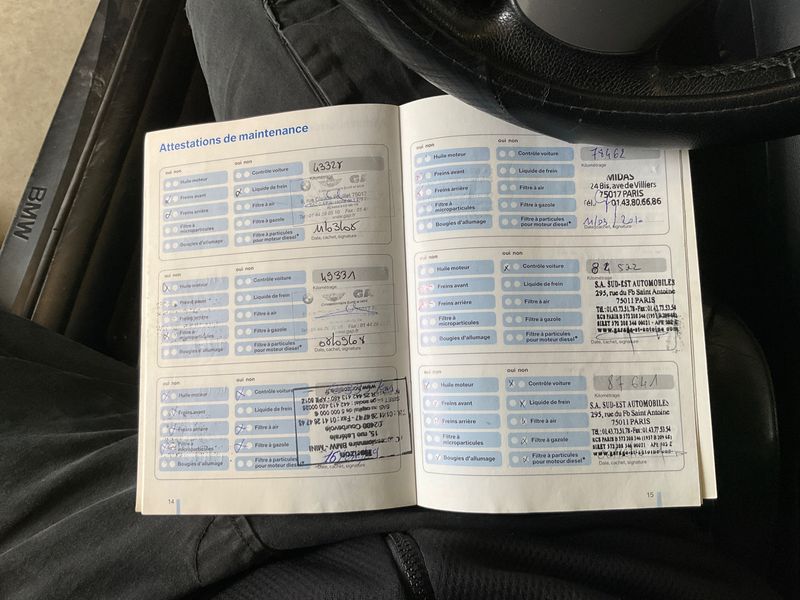 BMW
Attestations de maintenance
oui non
oui non
Huile moteur
Contrôle voiture
43328
Kilométrage
Freins avant
Liquide de frein
Freins arrière
Filtre à air
Filtre à microparticules
Filtre à gazole
Bougies d'allumage
Filtre à particules
pour moteur diesel*
Date, cachet, signature
oui non
oui non
Huile moteur
Contrôle voiture
49331
Kilométrage
Freins avant
Liquide de frein
Freins arrière
Filtre à air
Filtre à
microparticules
Filtre à gazole
Bougies d'allumage
Filtre à particules
pour moteur diesel*
Date, cachet, signature
oui non
oui non
Huile moteur
Contrôle voiture
Freins avant
Liquide de frein
Freins arrière
Filtre à air
Filtre à
microparticules
Filtre à gazole
Bougies d'allumage
Filtre à particules
pour moteur diesel*
Date, cachet, signature
14
oui non
oui non
Huile moteur
Contrôle voiture
78462
Kilométrage
Freins avant
Liquide de frein
Freins arrière
Filtre à air
Filtre à
microparticules
Filtre à gazole
Bougies d'allumage
Filtre à particules
pour moteur diesel*
MIDAS
24 Bis, ave de Villiers
75017 PARIS
Tél. 01.43.80.66.86
Date, cachet, signature
oui non
oui non
Huile moteur
Contrôle voiture
84 522
Kilométrage
Freins avant
Liquide de frein
Freins arrière
Filtre à air
Filtre à
microparticules
Filtre à gazole
Bougies d'allumage
Filtre à particules
pour moteur diesel*
S.A. SUD-EST AUTOMOBILES
295, rue du Fb Saint Antoine
75011 PARIS
Tél.: 01.43.73.51.78 - Fax: 01.43.73.53.54
www.garage-st-antoine.com
oui non
oui non
Huile moteur
Contrôle voiture
87641
Kilométrage
Freins avant
Liquide de frein
Freins arrière
Filtre à air
Filtre à
microparticules
Filtre à gazole
Bougies d'allumage
Filtre à particules
pour moteur diesel*
S.A. SUD-EST AUTOMOBILES
295, rue du Fb Saint Antoine
75011 PARIS
Tél.: 01.43.73.51.78 - Fax: 01.43.73.53.54
www.garage-st-antoine.com
Date, cachet, signature
15